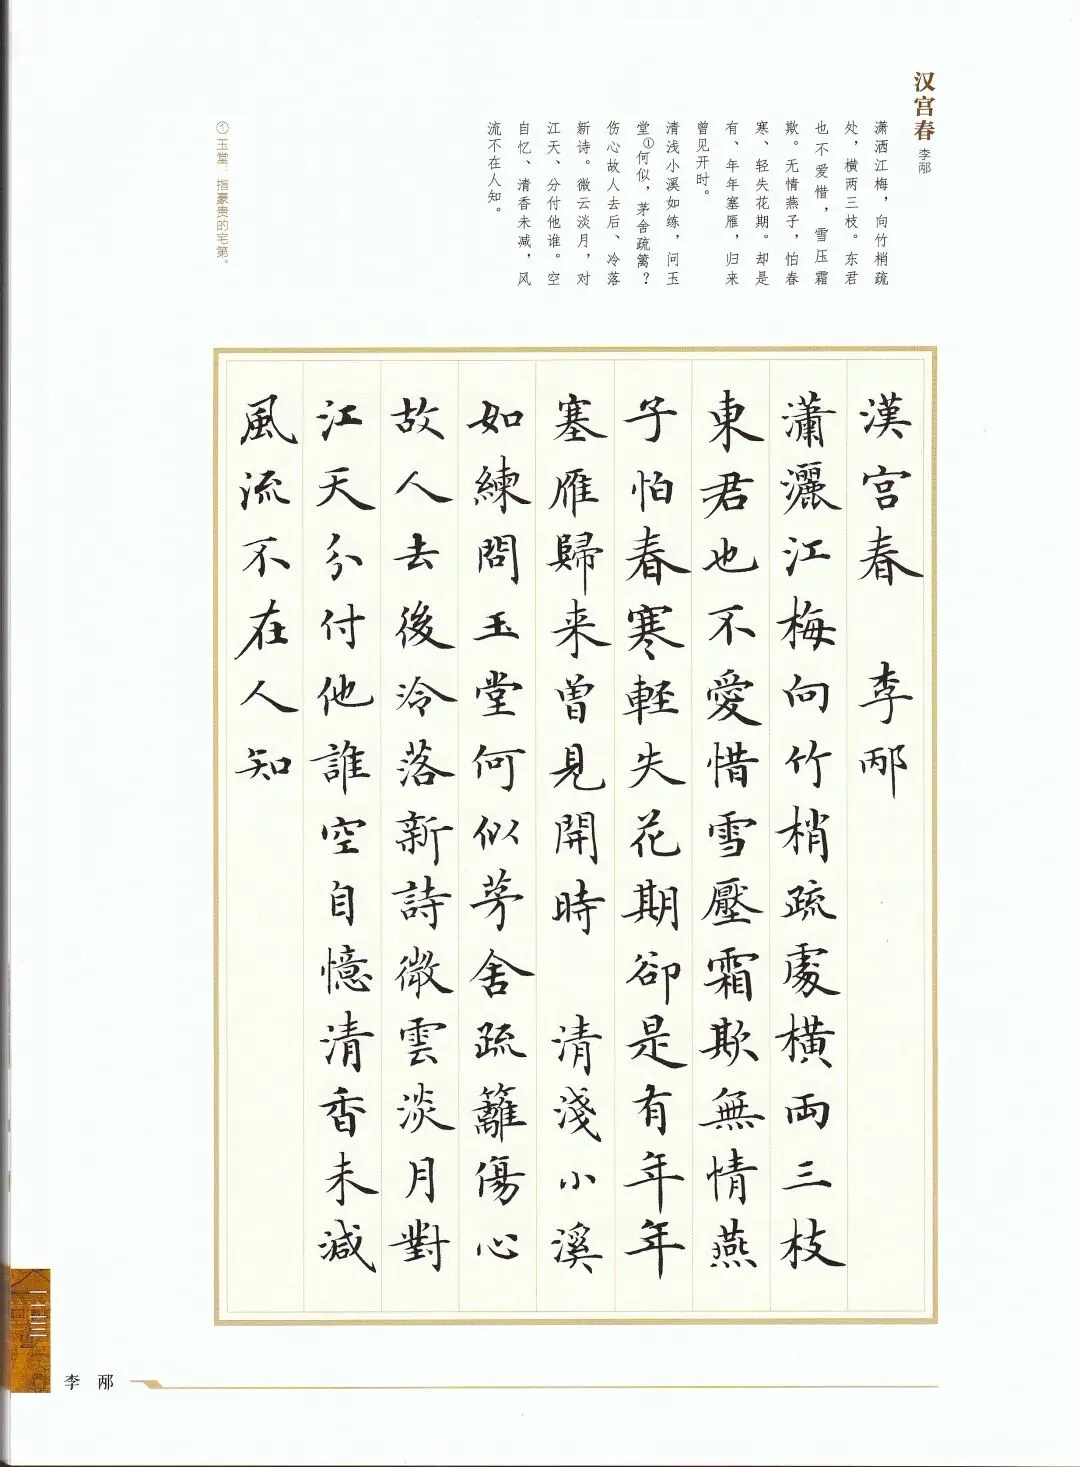 汉宫春
李邴
潇洒江梅，向竹梢疏
处，横两三枝。东君
也不爱惜，雪压霜
欺。无情燕子，怕春
寒、轻失花期。却是
有、年年塞雁，归来
曾见开时。
清浅小溪如练，问玉
堂①何似，茅舍疏篱？
伤心故人去后、冷落
新诗。微云淡月，对
江天、分付他谁。空
自忆、清香未减，风
流不在人知。
①玉堂：指豪贵的宅第。
漢宫春 李邴
潇灑江梅向竹梢疏處横兩三枝
東君也不愛惜雪壓霜欺無情燕
子怕春寒輕失花期卻是有年年
塞雁歸来曾見開時 清淺小溪
如練問玉堂何似茅舍疏籬傷心
故人去後泠落新詩微雲淡月對
江天分付他誰空自憶清香未減
風流不在人知
一二三
李邴